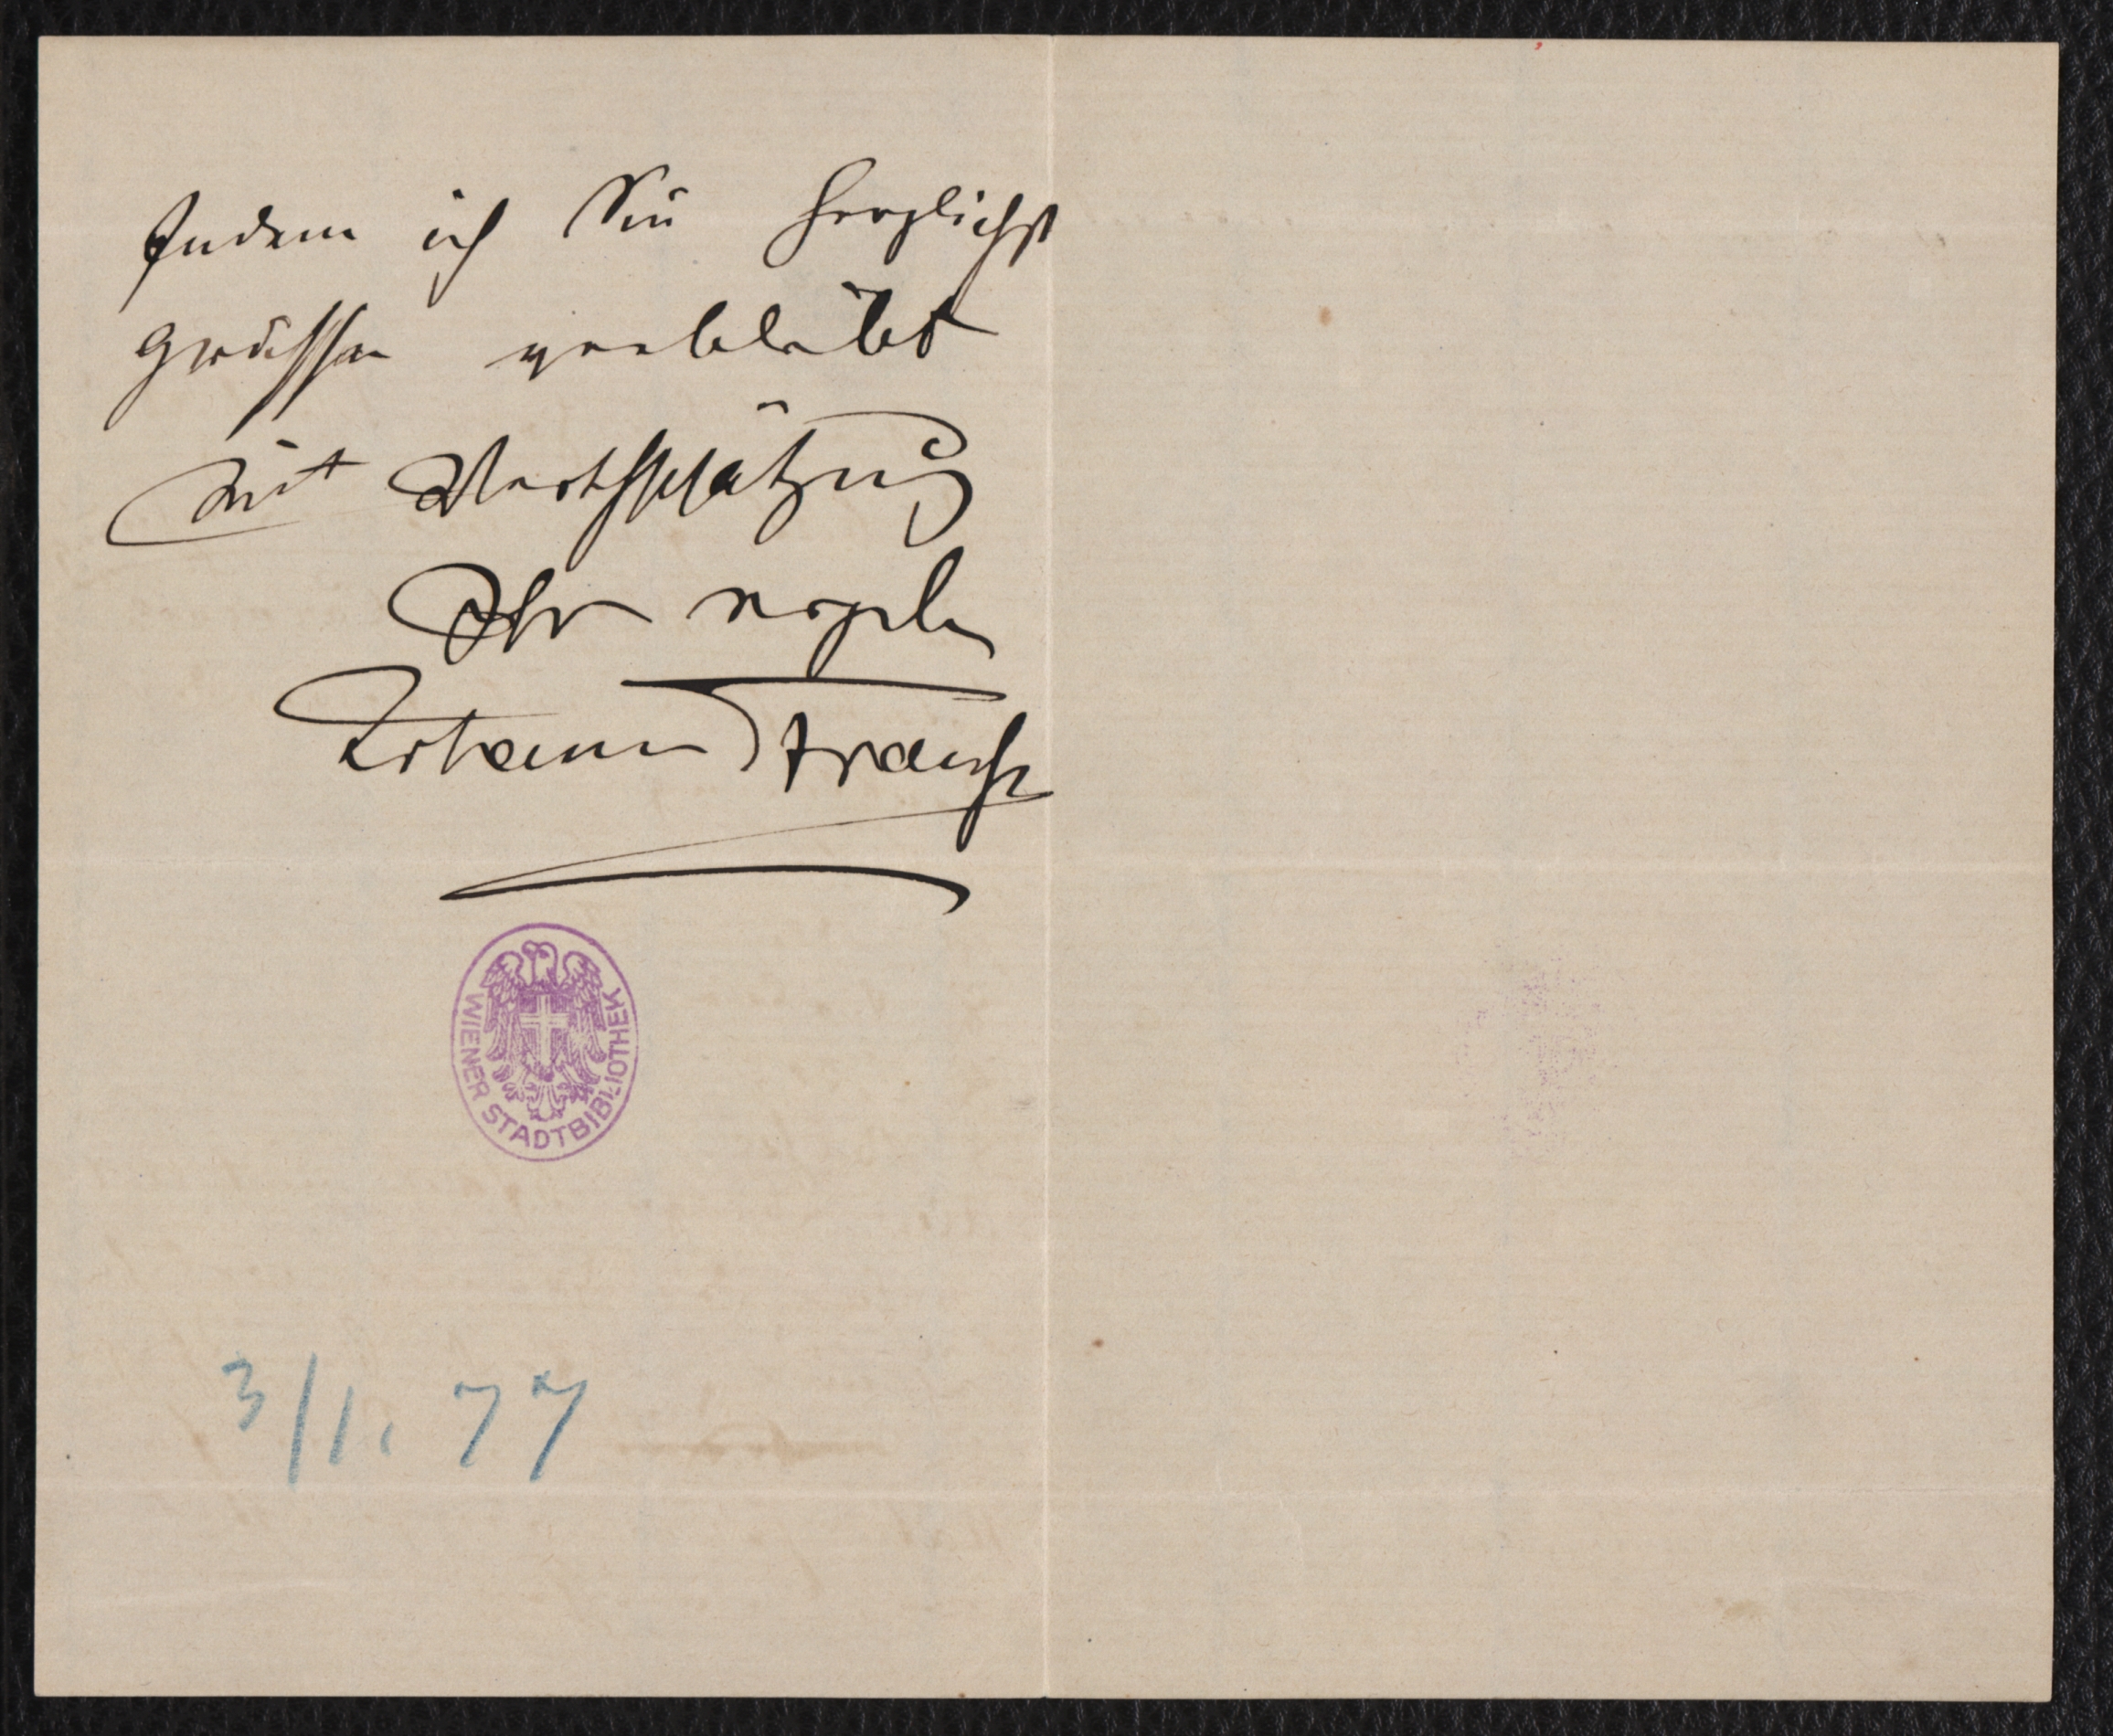 Indem ich Sie herzlichst
grüssen verbleibt
mit Werthschätzung
Ihr ergeb
Johann Strauss
WIENER STADTBIBLIOTHEK
3/1. 77